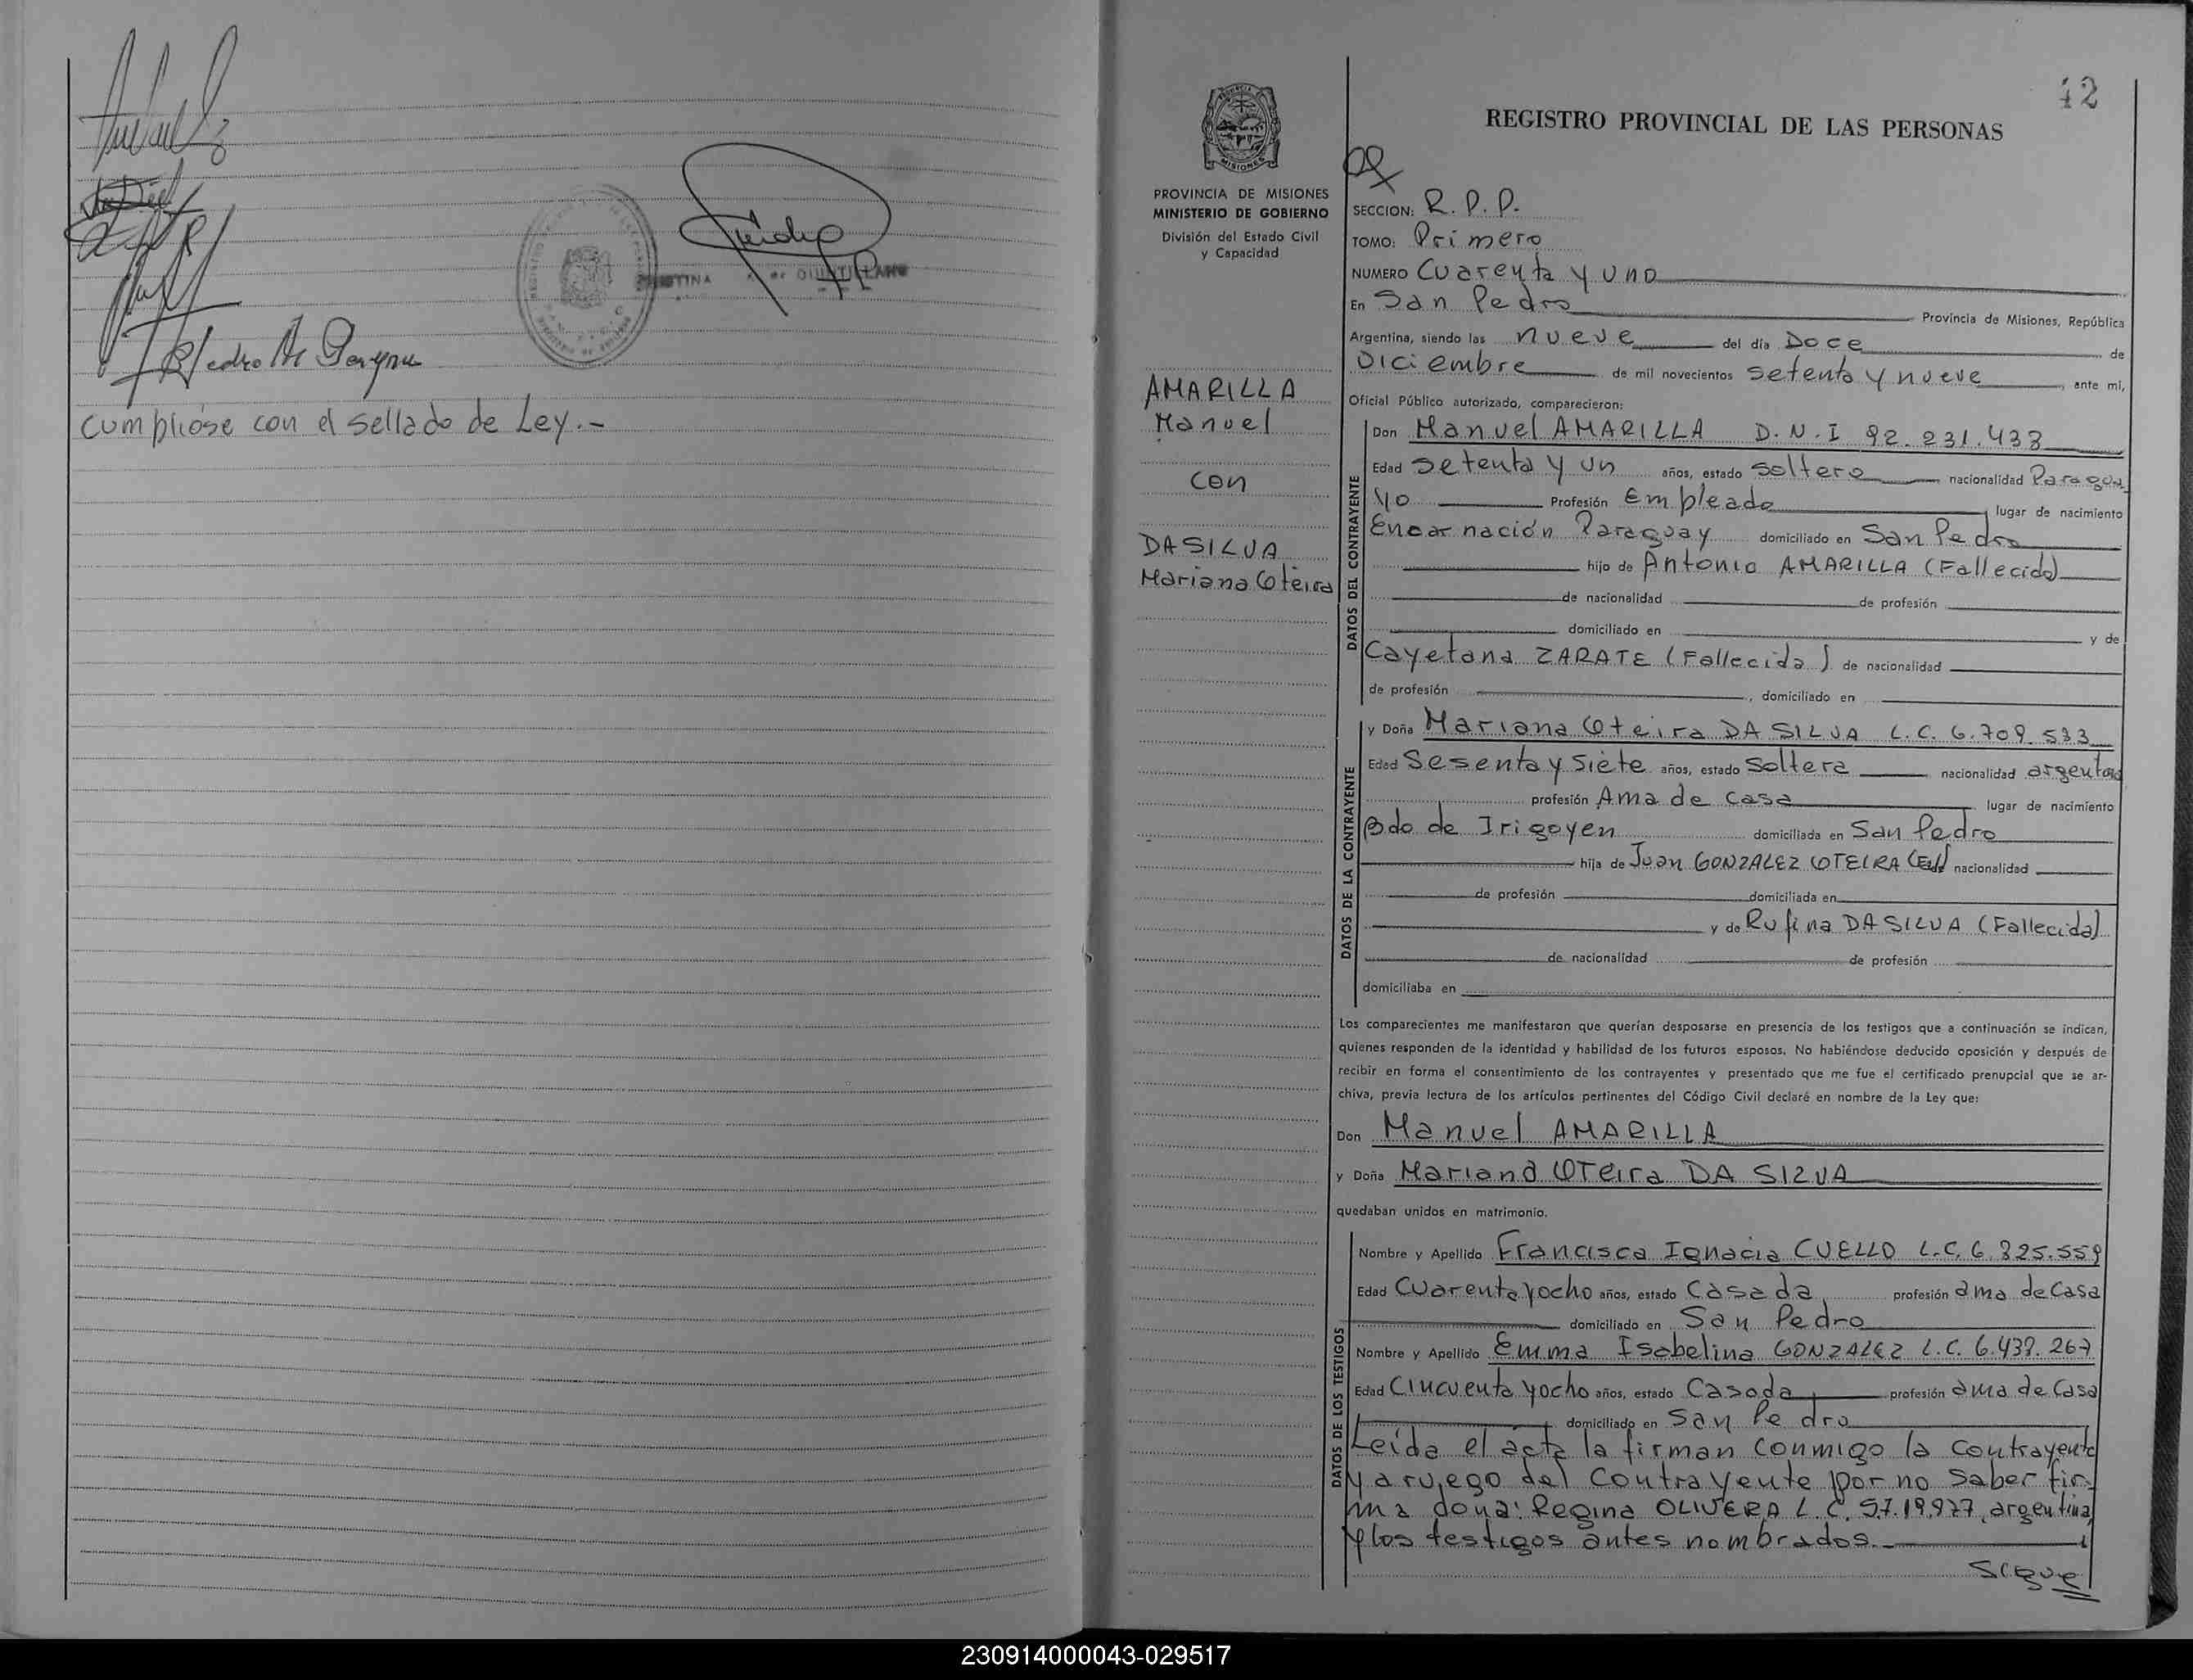 Pedro
Cumplióse con el sellado de Ley.-
42
REGISTRO PROVINCIAL DE LAS PERSONAS
PROVINCIA DE MISIONES
MINISTERIO DE GOBIERNO
División del Estado Civil
y Capacidad
AMARILLA
Manuel
con
DASILVA
Mariana Oteira
SECCION: R. P. P.
TOMO: Primero
NUMERO Cuarenta y uno
En San Pedro Provincia de Misiones, República
Argentina, siendo las nueve del día Doce de
Diciembre de mil novecientos setenta y nueve, ante mi,
Oficial Público autorizado, comparecieron:
DATOS DEL CONTRAYENTE
Don Manuel AMARILLA D.N.I 92.231.433
Edad setenta y un años, estado soltero nacionalidad Paragua
yo Profesión Empleado lugar de nacimiento
Encarnación Paraguay domiciliado en San Pedro
hijo de Antonio AMARILLA (Fallecido)
de nacionalidad de profesión
domiciliado en y de
Cayetana ZARATE (Fallecida) de nacionalidad
de profesión , domiciliado en
DATOS DE LA CONTRAYENTE
y Doña Mariana Oteira DA SILVA L.C. 6.709.533
Edad Sesenta y Siete años, estado Soltera nacionalidad argentina
profesión Ama de casa lugar de nacimiento
Bdo de Irigoyen domiciliada en San Pedro
hija de Juan GONZALEZ OTEIRA nacionalidad
de profesión domiciliada en
y de Rufina DA SILVA (Fallecida)
de nacionalidad de profesión
domiciliaba en
Los comparecientes me manifestaron que querían desposarse en presencia de los testigos que a continuación se indican,
quienes responden de la identidad y habilidad de los futuros esposos. No habiéndose deducido oposición y después de
recibir en forma el consentimiento de los contrayentes y presentado que me fue el certificado prenupcial que se ar-
chiva, previa lectura de los artículos pertinentes del Código Civil declaré en nombre de la Ley que:
Don Manuel AMARILLA
y Doña Mariana OTeira DA SILVA
quedaban unidos en matrimonio.
DATOS DE LOS TESTIGOS
Nombre y Apellido Francisca Ignacia CUELLO L.C. 6.325.559
Edad Cuarenta y ocho años, estado Casada profesión ama de Casa
domiciliado en San Pedro
Nombre y Apellido Emma Isabelina GONZALEZ L.C. 6.439.267
Edad Cincuenta y ocho años, estado Casada profesión ama de Casa
domiciliado en San Pedro
Leída el acta la firman conmigo la contrayente
y a ruego del Contrayente por no saber fir
ma doña: Regina OLIVERA L.C. argentina,
y los testigos antes nombrados.-
Sigue
230914000043-029517